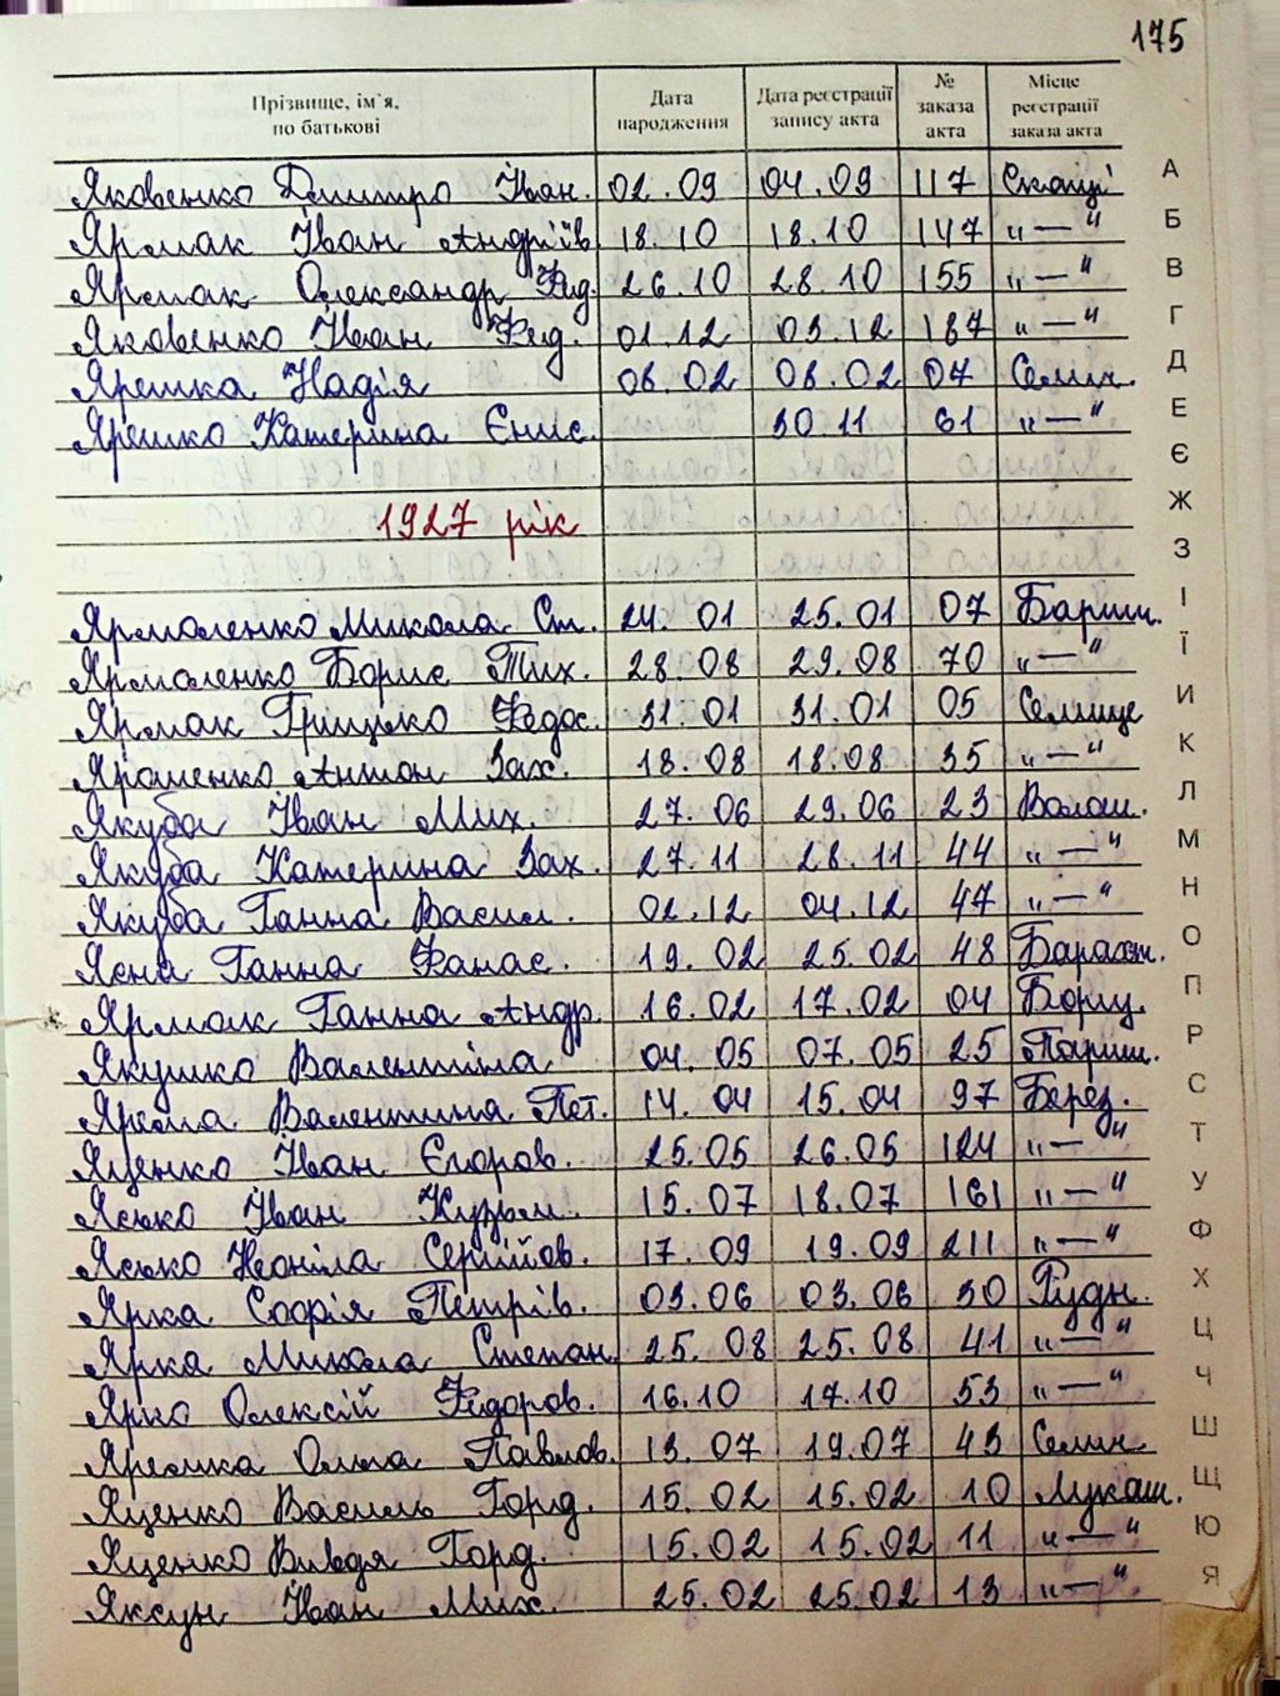 175
Прізвище, ім`я, по батькові Дата народження Дата реєстрації запису акта № заказа акта Місце реєстрації заказа акта
Яковенко Дмитро Іван. 02.09 04.09 117 Скопці
Ярмак Іван Андріїв 18.10 18.10 147 „—"
Ярмак Олександр Фед. 26.10 28.10 155 „—"
Яковенко Іван Фед. 01.12 03.12 187 „—"
Яремка Надія 08.02 08.02 07 Семин.
Яремко Катерина Єнис. 30.11 61 „—"
1927 рік
Ярмоленко Микола Ст. 24.01 25.01 07 Бариш.
Ярмоленко Борис Тих. 28.08 29.08 70 „—"
Ярмак Грицько Федос. 31.01 31.01 05
Ярошенко Антон Зах. 18.08 18.08 35 „—"
Якуба Іван Мих. 27.06 29.06 23 Волош.
Якуба Катерина Зах. 27.11 28.11 44 „—"
Якуба Ганна Васил. 02.12 04.12 47 „—"
Ясна Ганна Фанас. 19.02 25.02 48
Ярмак Ганна Андр. 16.02 17.02 04 Борщ.
Якушко Валентіна 04.05 07.05 25 Париш.
Ярема Валентина Пет. 14.04 15.04 97 Берез.
Яценко Іван Єгоров. 25.05 26.05 124 „—"
Ясько Іван Кузьм. 15.07 18.07 161 „—"
Ясько Неоніла Сергійов. 17.09 19.09 211 „—"
Ярка Софія Петрів. 03.06 03.06 30 Рудн.
Ярка Микола Степан. 25.08 25.08 41 „—"
Ярко Олексій Федоров. 16.10 17.10 53 „—"
Яремка Ольга Павлов. 13.07 19.07 43 Семин.
Яценко Василь Горд. 15.02 15.02 10 Лукаш.
Яценко Вивдя Горд. 15.02 15.02 11 „—"
Яксун Іван Мих. 25.02 25.02 13 „—"
А
Б
В
Г
Д
Е
Є
Ж
З
І
Ї
И
К
Л
М
Н
О
П
Р
С
Т
У
Ф
Х
Ц
Ч
Ш
Щ
Ю
Я